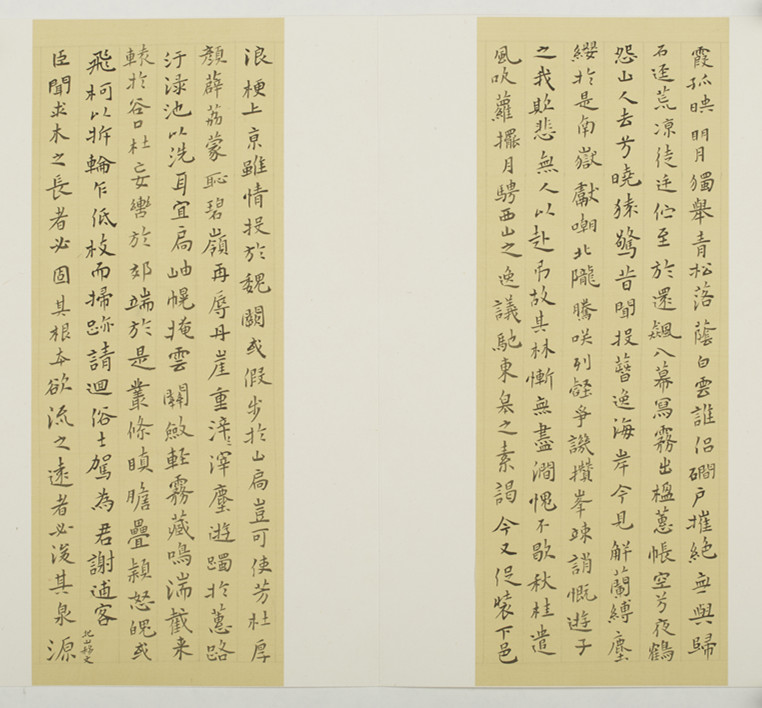 霞孤映明月獨舉青松落蔭白雲誰侶磵戶摧絕无與歸
石逕荒涼徒延佇至於還飆入幕寫霧出楹蕙帳空兮夜鶴
怨山人去兮曉猿驚昔聞投簪逸海岸今見解蘭縛塵
纓於是南嶽獻嘲北隴騰咲列壑爭譏攢峯竦誚慨遊子
之我欺悲無人以赴弔故其林慚無盡澗愧不歇秋桂遣
風吹蘿擺月騁西山之逸議馳東皋之素謁今又促裝下邑
浪梗上京雖情投於魏闕或假步於山扃豈可使芳杜厚
顏薜荔蒙恥碧嶺再辱丹崖重滓滓塵遊躅於蕙路
汙淥池以洗耳宜扃岫幌掩雲關斂輕霧藏鳴湍截来
轅於谷口杜妄轡於郊端於是叢條瞋膽疊穎怒魄或
飛柯以折輪乍低枝而掃跡請迴俗士駕為君謝逋客
北山移文
臣聞求木之長者必固其根本欲流之遠者必浚其泉源